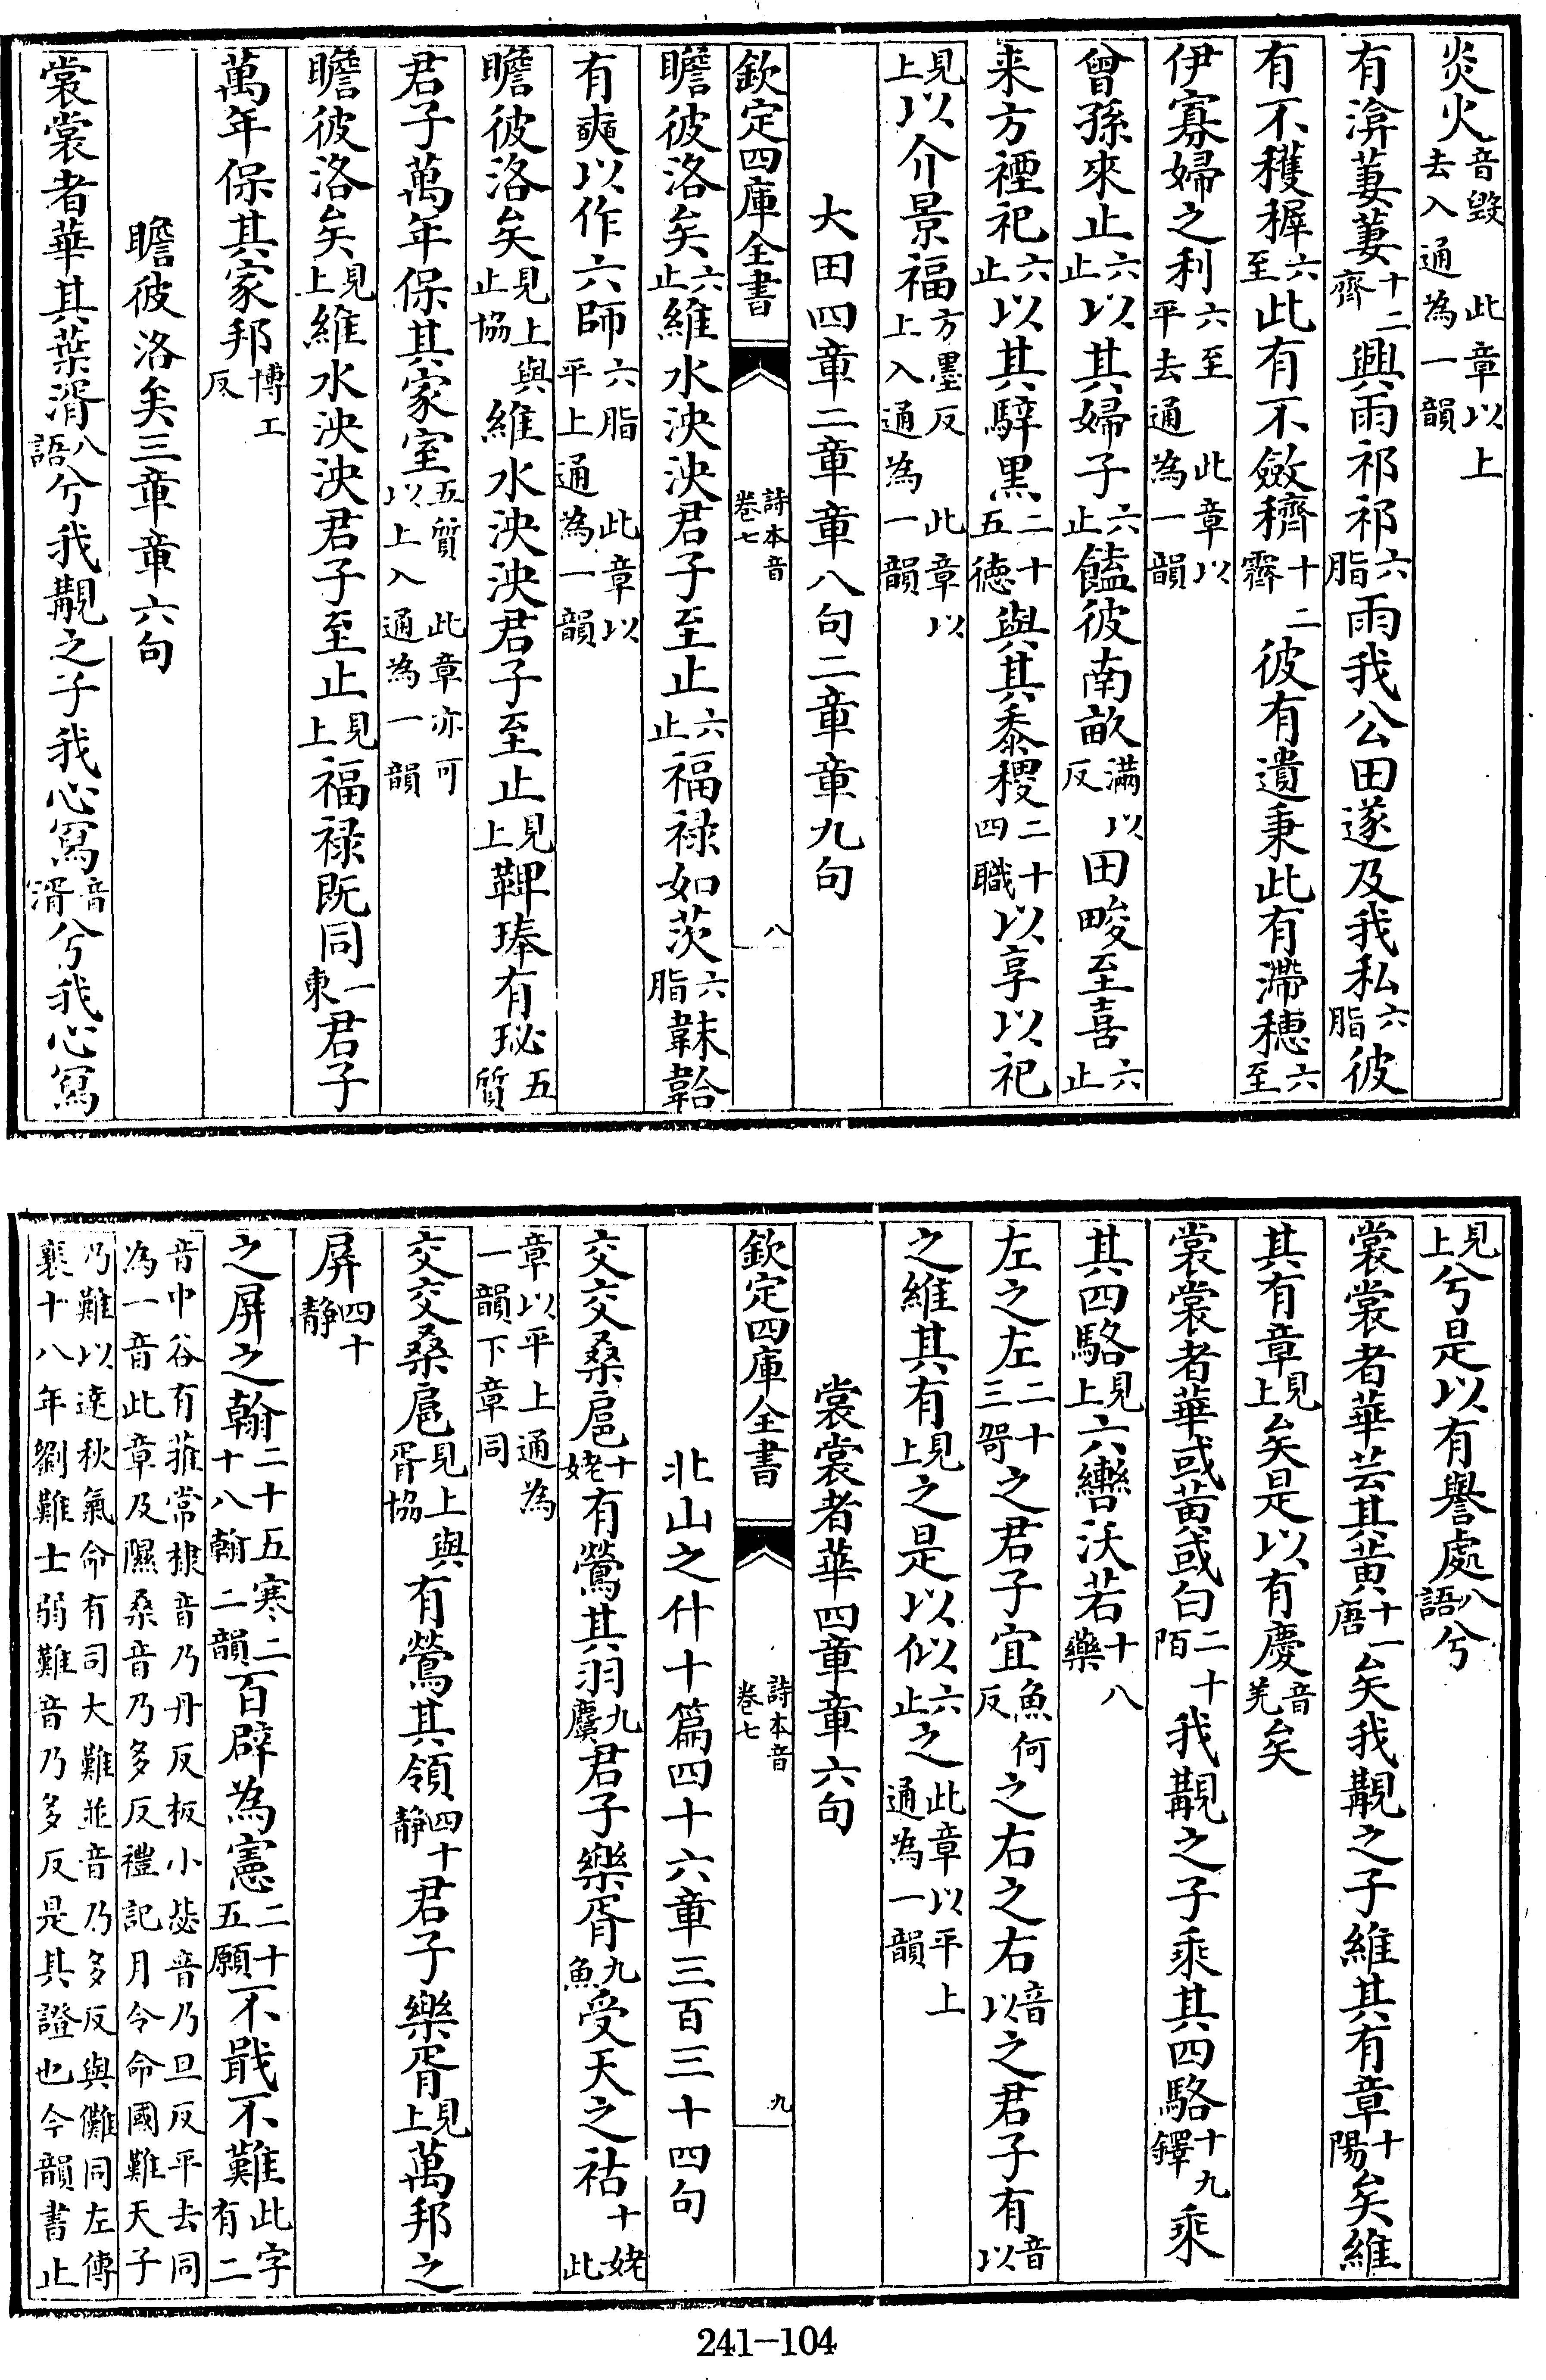 炎火音毀 此章以上去入通為一韻
有渰萋萋十二齊興雨祁祁六脂雨我公田遂及我私六脂彼
有不穫穉六至此有不斂穧十二霽彼有遺秉此有滯穗六至
伊寡婦之利六至 此章以平去通為一韻
曾孫來止六止以其婦子六止饁彼南畝滿以反田畯至喜六止
来方禋祀六止以其騂黑二十五德與其黍稷二十四職以享以祀
見上以介景福方墨反 此章以上入通為一韻
大田四章二章章八句二章章九句
欽定四庫全書 詩本音卷七 八
瞻彼洛矣六止維水泱泱君子至止六止福禄如茨六脂韎韐
有奭以作六師六脂 此章以平上通為一韻
瞻彼洛矣見上與止協維水泱泱君子至止見上鞞琫有珌五質
君子萬年保其家室五質 此章亦可以上入通為一韻
瞻彼洛矣見上維水泱泱君子至止見上福禄既同一東君子
萬年保其家邦博工反
瞻彼洛矣三章章六句
裳裳者華其葉湑八語兮我覯之子我心寫音湑兮我心寫
見上兮是以有譽處八語兮
裳裳者華芸其黄十一唐矣我覯之子維其有章十陽矣維
其有章見上矣是以有慶音羌矣
裳裳者華或黄或白二十陌我覯之子乘其四駱十九鐸乘
其四駱見上六轡沃若十八藥
左之左二十三哿之君子宜魚何反之右之右音以之君子有音以
之維其有見上之是以似六止之此章以平上通為一韻
裳裳者華四章章六句
欽定四庫全書 詩本音卷七 九
北山之什十篇四十六章三百三十四句
交交桑扈十姥有鶯其羽九麌君子樂胥九魚受天之祜十姥 此
章以平上通為一韻下章同
交交桑扈見上與胥協有鶯其領四十靜君子樂胥見上萬邦之
屏四十靜
之屏之翰二十五寒二十八翰二韻百辟為憲二十五願不戢不難此字有二
音中谷有蓷常棣音乃丹反板小毖音乃旦反平去同
為一音此章及隰桑音乃多反禮記月令命國難天子
乃難以達秋氣命有司大難並音乃多反與儺同左傳
襄十八年劉難士弱難音乃多反是其證也今韻書止
241-104